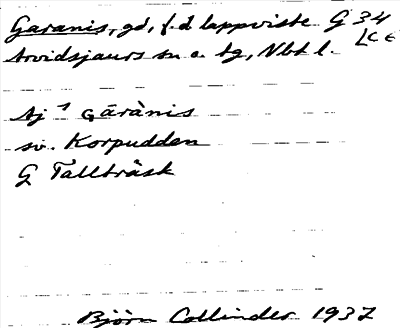 Garanis, gd, f.d lappviste G 34
Arvidsjaurs sn o. tg, Nbt l. LC E
Aj ¹ Gārànis
sv. Korpudden
G Tallträsk
Björn Collinder 1937